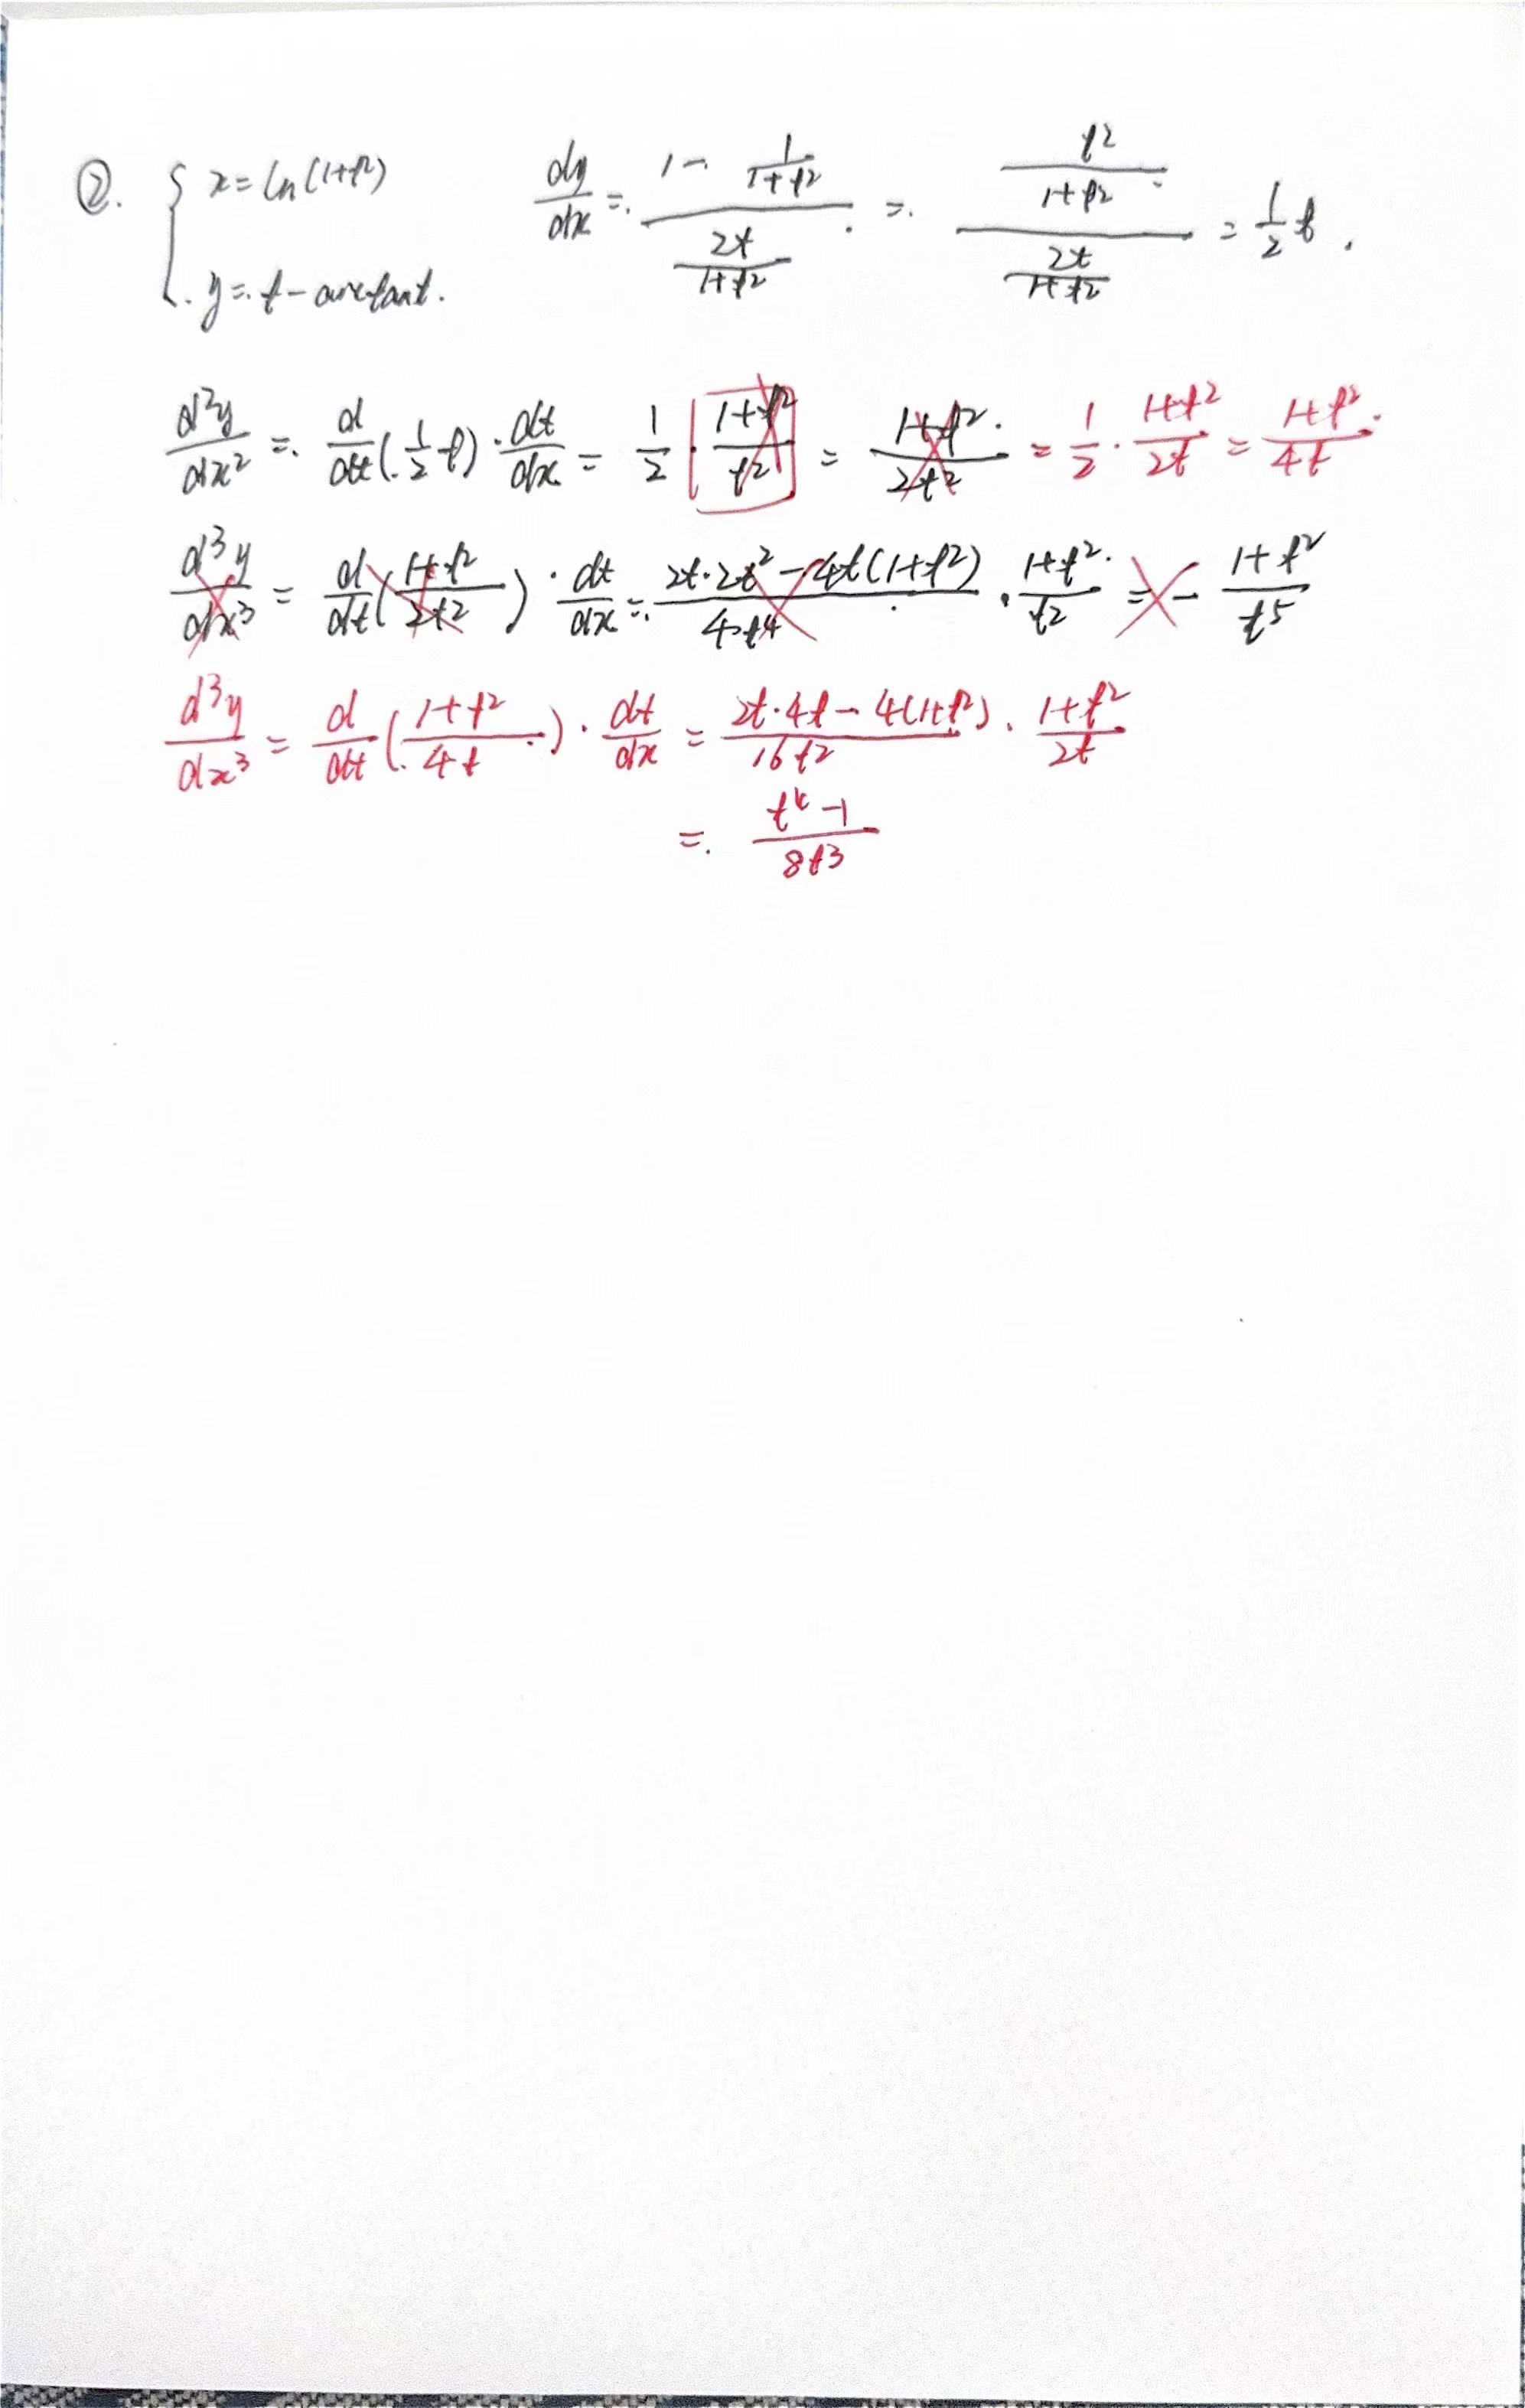 ②. { x = ln(1+t²)   dy/dx = (1 - 1/(1+t²)) / (2t/(1+t²)) = (t²/(1+t²)) / (2t/(1+t²)) = 1/2 t.
y = t - arctant.
d²y/dx² = d/dt (1/2 t) · dt/dx = 1/2 · (1+t²)/t² = (1+t²)/(2t²) = 1/2 · (1+t²)/(2t) = (1+t²)/(4t).
d³y/dx³ = d/dt ((1+t²)/(2t²)) · dt/dx = (2t·2t² - 4t(1+t²))/(4t⁴) · (1+t²)/t² = - (1+t²)/t⁵
d³y/dx³ = d/dt ((1+t²)/(4t)) · dt/dx = (2t·4t - 4(1+t²))/(16t²) · (1+t²)/(2t)
= (t⁴-1)/(8t³)